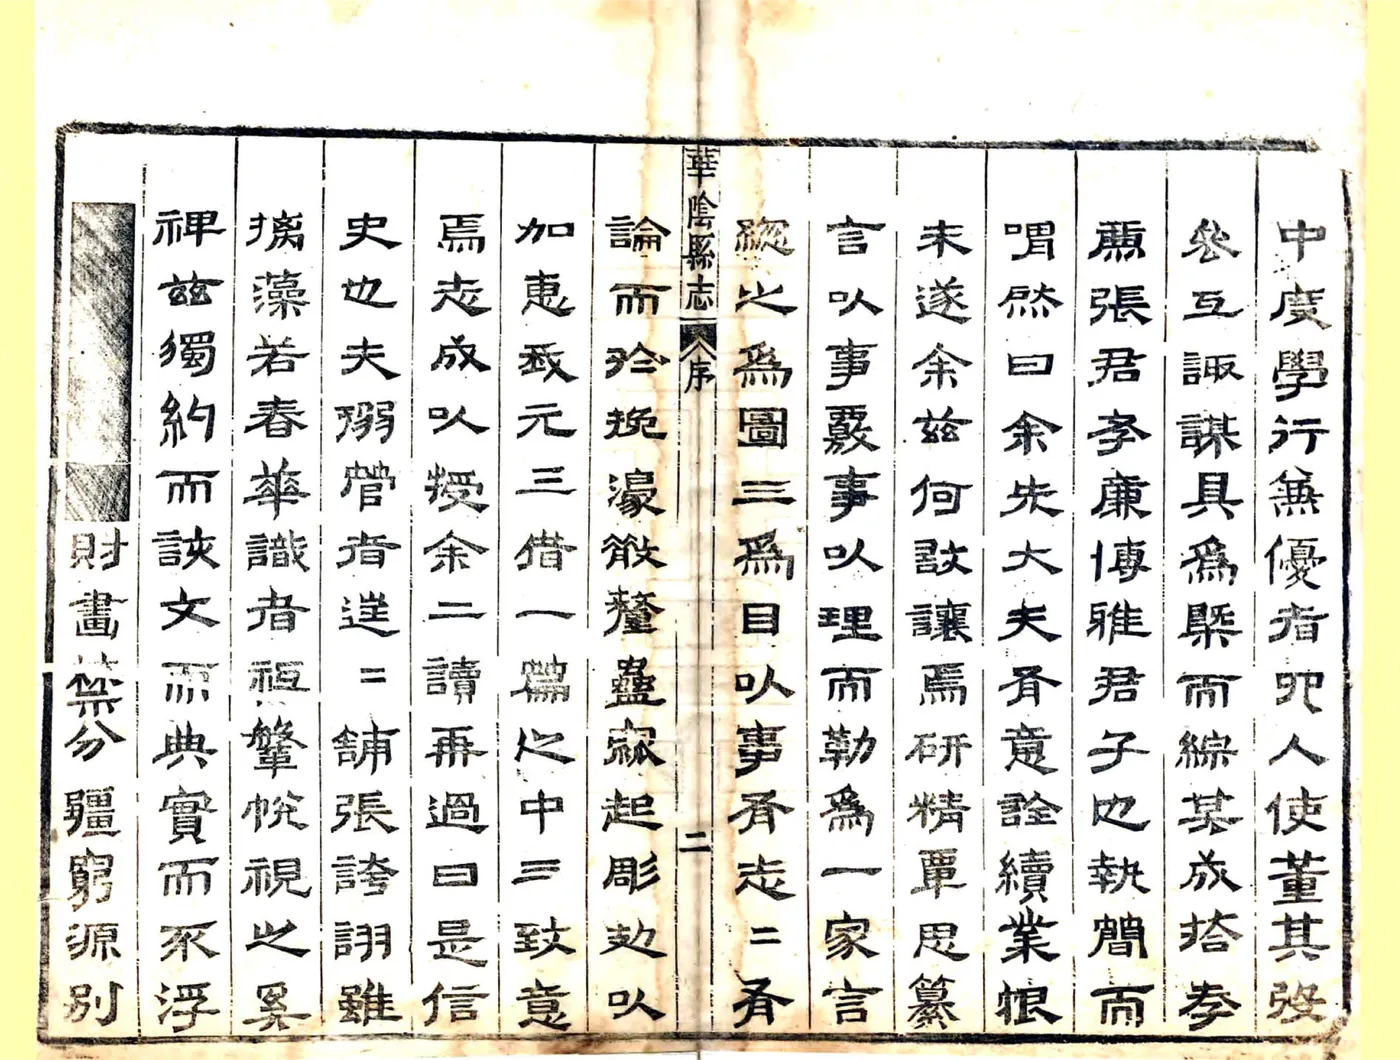 中度學行無優者四人使董其役
叅互諏謀具爲槩而綜其成搭孝
廌張君孝廉博雅君子也執簡而
喟然曰余先大夫有意詮續業恨
未遂余茲何敢讓焉研精覃思纂
言以事覈事以理而勒爲一家言
總之爲圖三爲目以事有志二有
華陰縣志 序 二
論而於挽濠散釐蠱寂起彫攰以
加惠我元三借一篇之中三致意
焉志成以授余二讀再過曰是信
史也夫溺管者逞二舖張誇詡雖
摛藻若春華識者祗鞶帨視之奚
裨茲獨約而該文而典實而不浮
財畫禁分疆窮源別